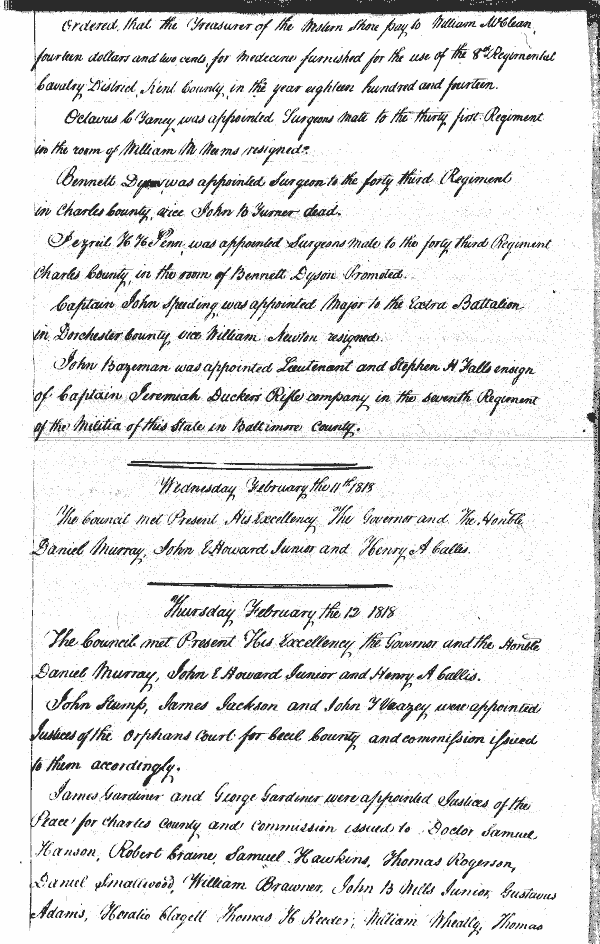 Ordered, that the Treasurer of the Western Shore pay to William McClean,
fourteen dollars and two cents, for medecine furnished for the use of the 8th Regimental
Cavalry District, Kent County, in the year eighteen hundred and fourteen.
Octavus C Taney was appointed Surgeons mate to the thirty first Regiment
in the room of William M Weems resigned.
Bennett Dyson was appointed Surgeon to the forty third Regiment
in Charles County, vice John B Turner dead.
H Penn, was appointed Surgeons mate to the forty third Regiment
Charles County, in the room of Bennett Dyson Promoted.
Captain John Speeding was appointed Major to the Extra Battalion
in Dorchester County, vice William Newton resigned
John Bazeman was appointed Lieutenant and Stephen H Falls ensign
of Captain Jeremiah Duckers Rifle company in the seventh Regiment
of the Militia of this State in Baltimore County.
Wednesday February the 11th 1818
The Council met Present His Excellency The Governor and The Honble
Daniel Murray, John E Howard Junior and Henry A Callis.
Thursday February the 12 1818
The Council met Present His Excellency the Governor and the Honble
Daniel Murray, John E Howard Junior and Henry A Callis.
John Stump, James Jackson and John T Veazey were appointed
Justices of the Orphans Court for Cecil County and commission issued
to them accordingly.
James Gardiner and George Gardiner were appointed Justices of the
Peace for Charles County and Commission issued to Doctor Samuel
Hanson, Robert Craine, Samuel Hawkins, Thomas Rogerson,
Daniel Smallwood, William Brawner, John B Wills Junior, Gustavus
Adams, Horatio Clagett Thomas H Reeder, William Wheatly, Thomas